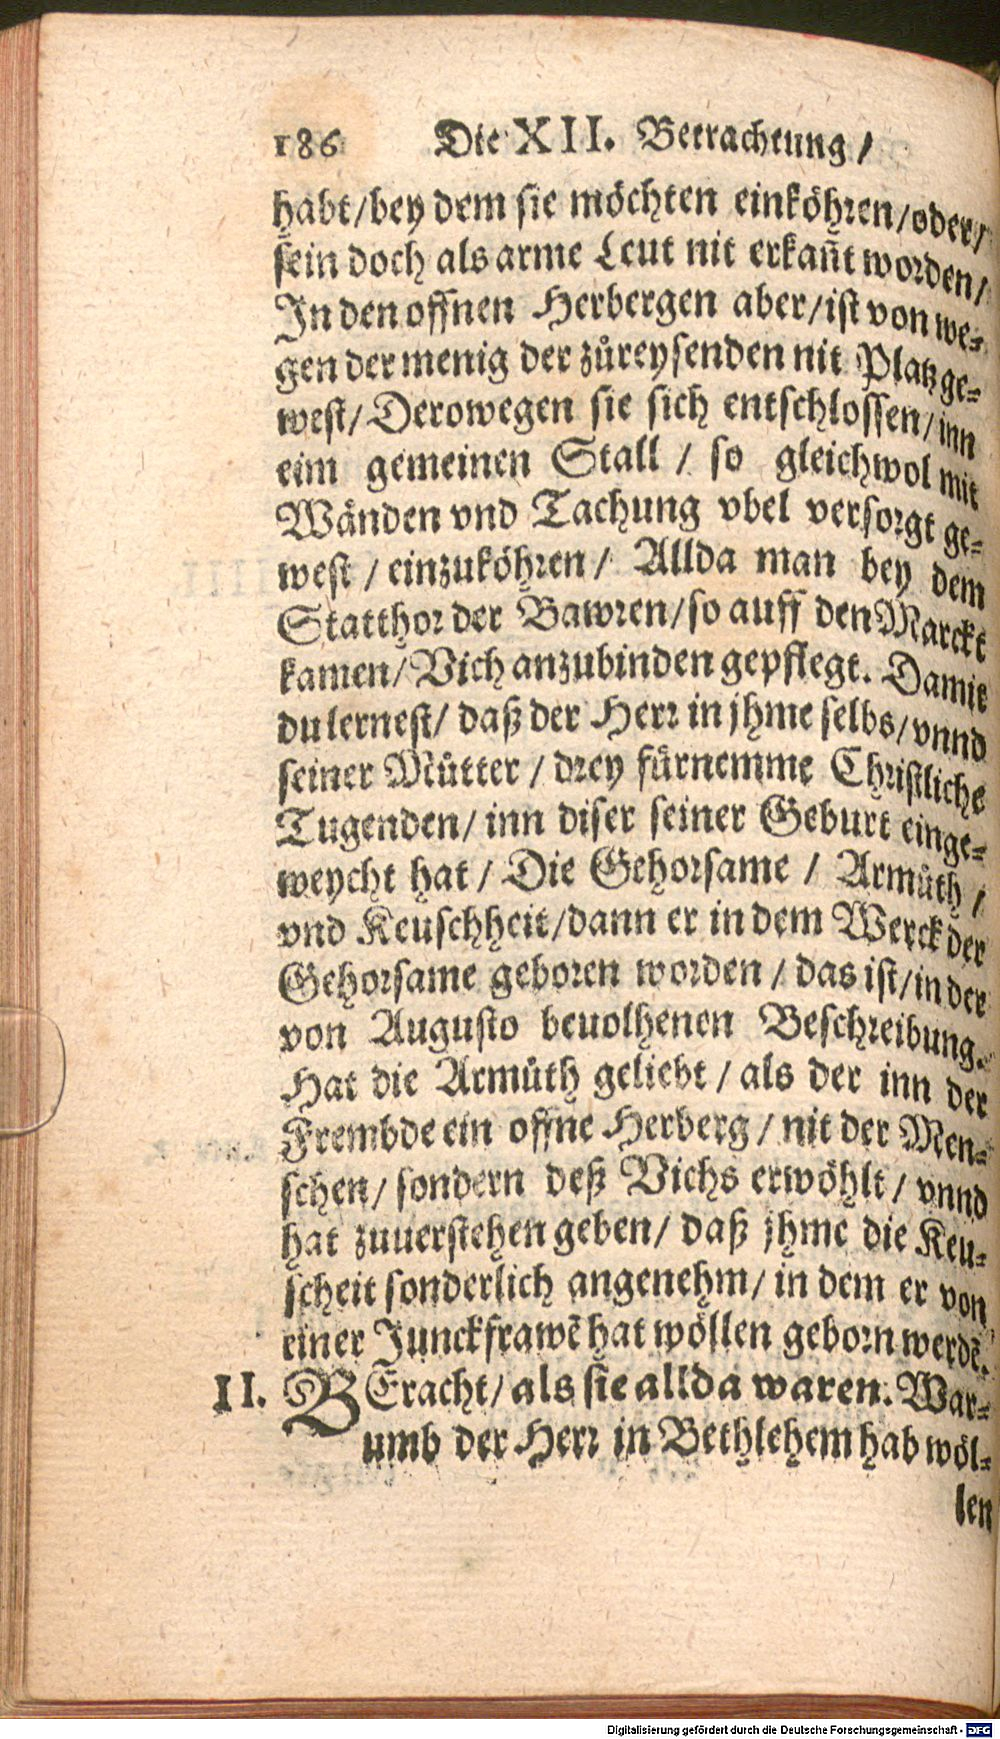 186 Die XII. Betrachtung /
habt / bey dem sie möchten einköhren / oder /
sein doch als arme Leut nit erkañt worden /
In den offnen Herbergen aber / ist von we-
gen der menig der zůreysenden nit Platz ge-
west / Derowegen sie sich entschlossen / inn
eim gemeinen Stall / so gleichwol mit
Wänden vnd Tachung vbel versorgt ge-
west / einzuköhren / Allda man bey dem
Statthor der Bawren / so auff den Marckt
kamen / Vich anzubinden gepflegt. Damit
du lernest / daß der Herr in jhme selbs / vnnd
seiner Můtter / drey fürnemme Christliche
Tugenden / inn diser seiner Geburt einge-
weycht hat / Die Gehorsame / Armůth /
vnd Keuschheit / dann er in dem Werck der
Gehorsame geboren worden / das ist / in der
von Augusto beuolhenen Beschreibung.
Hat die Armůth geliebt / als der inn der
Frembde ein offne Herberg / nit der Men-
schen / sondern deß Vichs erwöhlt / vnnd
hat zuuerstehen geben / daß jhme die Keu-
scheit sonderlich angenehm / in dem er von
einer Junckfrawẽ hat wöllen geborn werdẽ.
II. BEracht / als sie allda waren. War-
umb der Herr in Bethlehem hab wöl-
len
Digitalisierung gefördert durch die Deutsche Forschungsgemeinschaft - DFG